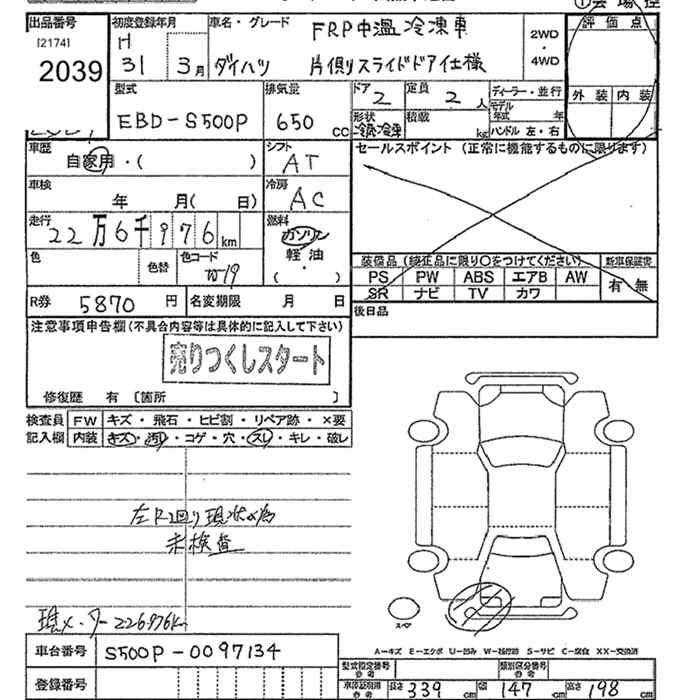 出品番号
[2174]
2039
初度登録年月
H
31 3月
車名・グレード
FRP中温冷凍車
ダイハツ 片側スライドドア仕様
2WD
・
4WD
①会場控
評価点
外装 内装
型式
EBD-S500P
排気量
650 cc
ドア 2
定員 2 人
形状
冷蔵冷凍
積載
kg
ディーラー・並行
モデル
年式 年
ハンドル 左・右
車歴
自家用・( )
シフト
AT
車検
年 月( 日)
冷房
AC
走行
22万6千976km
燃料
ガソリン
軽油
( )
色
色替
色コード
W19
R券 5870 円
名変期限 月 日
セールスポイント (正常に機能するものに限ります)
装備品(純正品に限り〇をつけてください)
新車保証書
PS PW ABS エアB AW
SR ナビ TV カワ
有 無
後日品
注意事項申告欄(不具合内容等は具体的に記入して下さい)
売りつくしスタート
修復歴 有 〔箇所 〕
検査員
記入欄
FW キズ・飛石・ヒビ割・リペア跡・×要
内装 キズ・汚れ・コゲ・穴・スレ・キレ・破レ
左R廻り現状の為
未検査
現メーター226976km
スペア
A-キズ E-エクボ U-凹み W-補修跡 S-サビ C-腐食 XX-交換済
車台番号 S500P-0097134
登録番号
型式指定番号
参考
類別区分番号
参考
車検証期限
参考
長さ 339 cm
幅 147 cm
高さ 198 cm